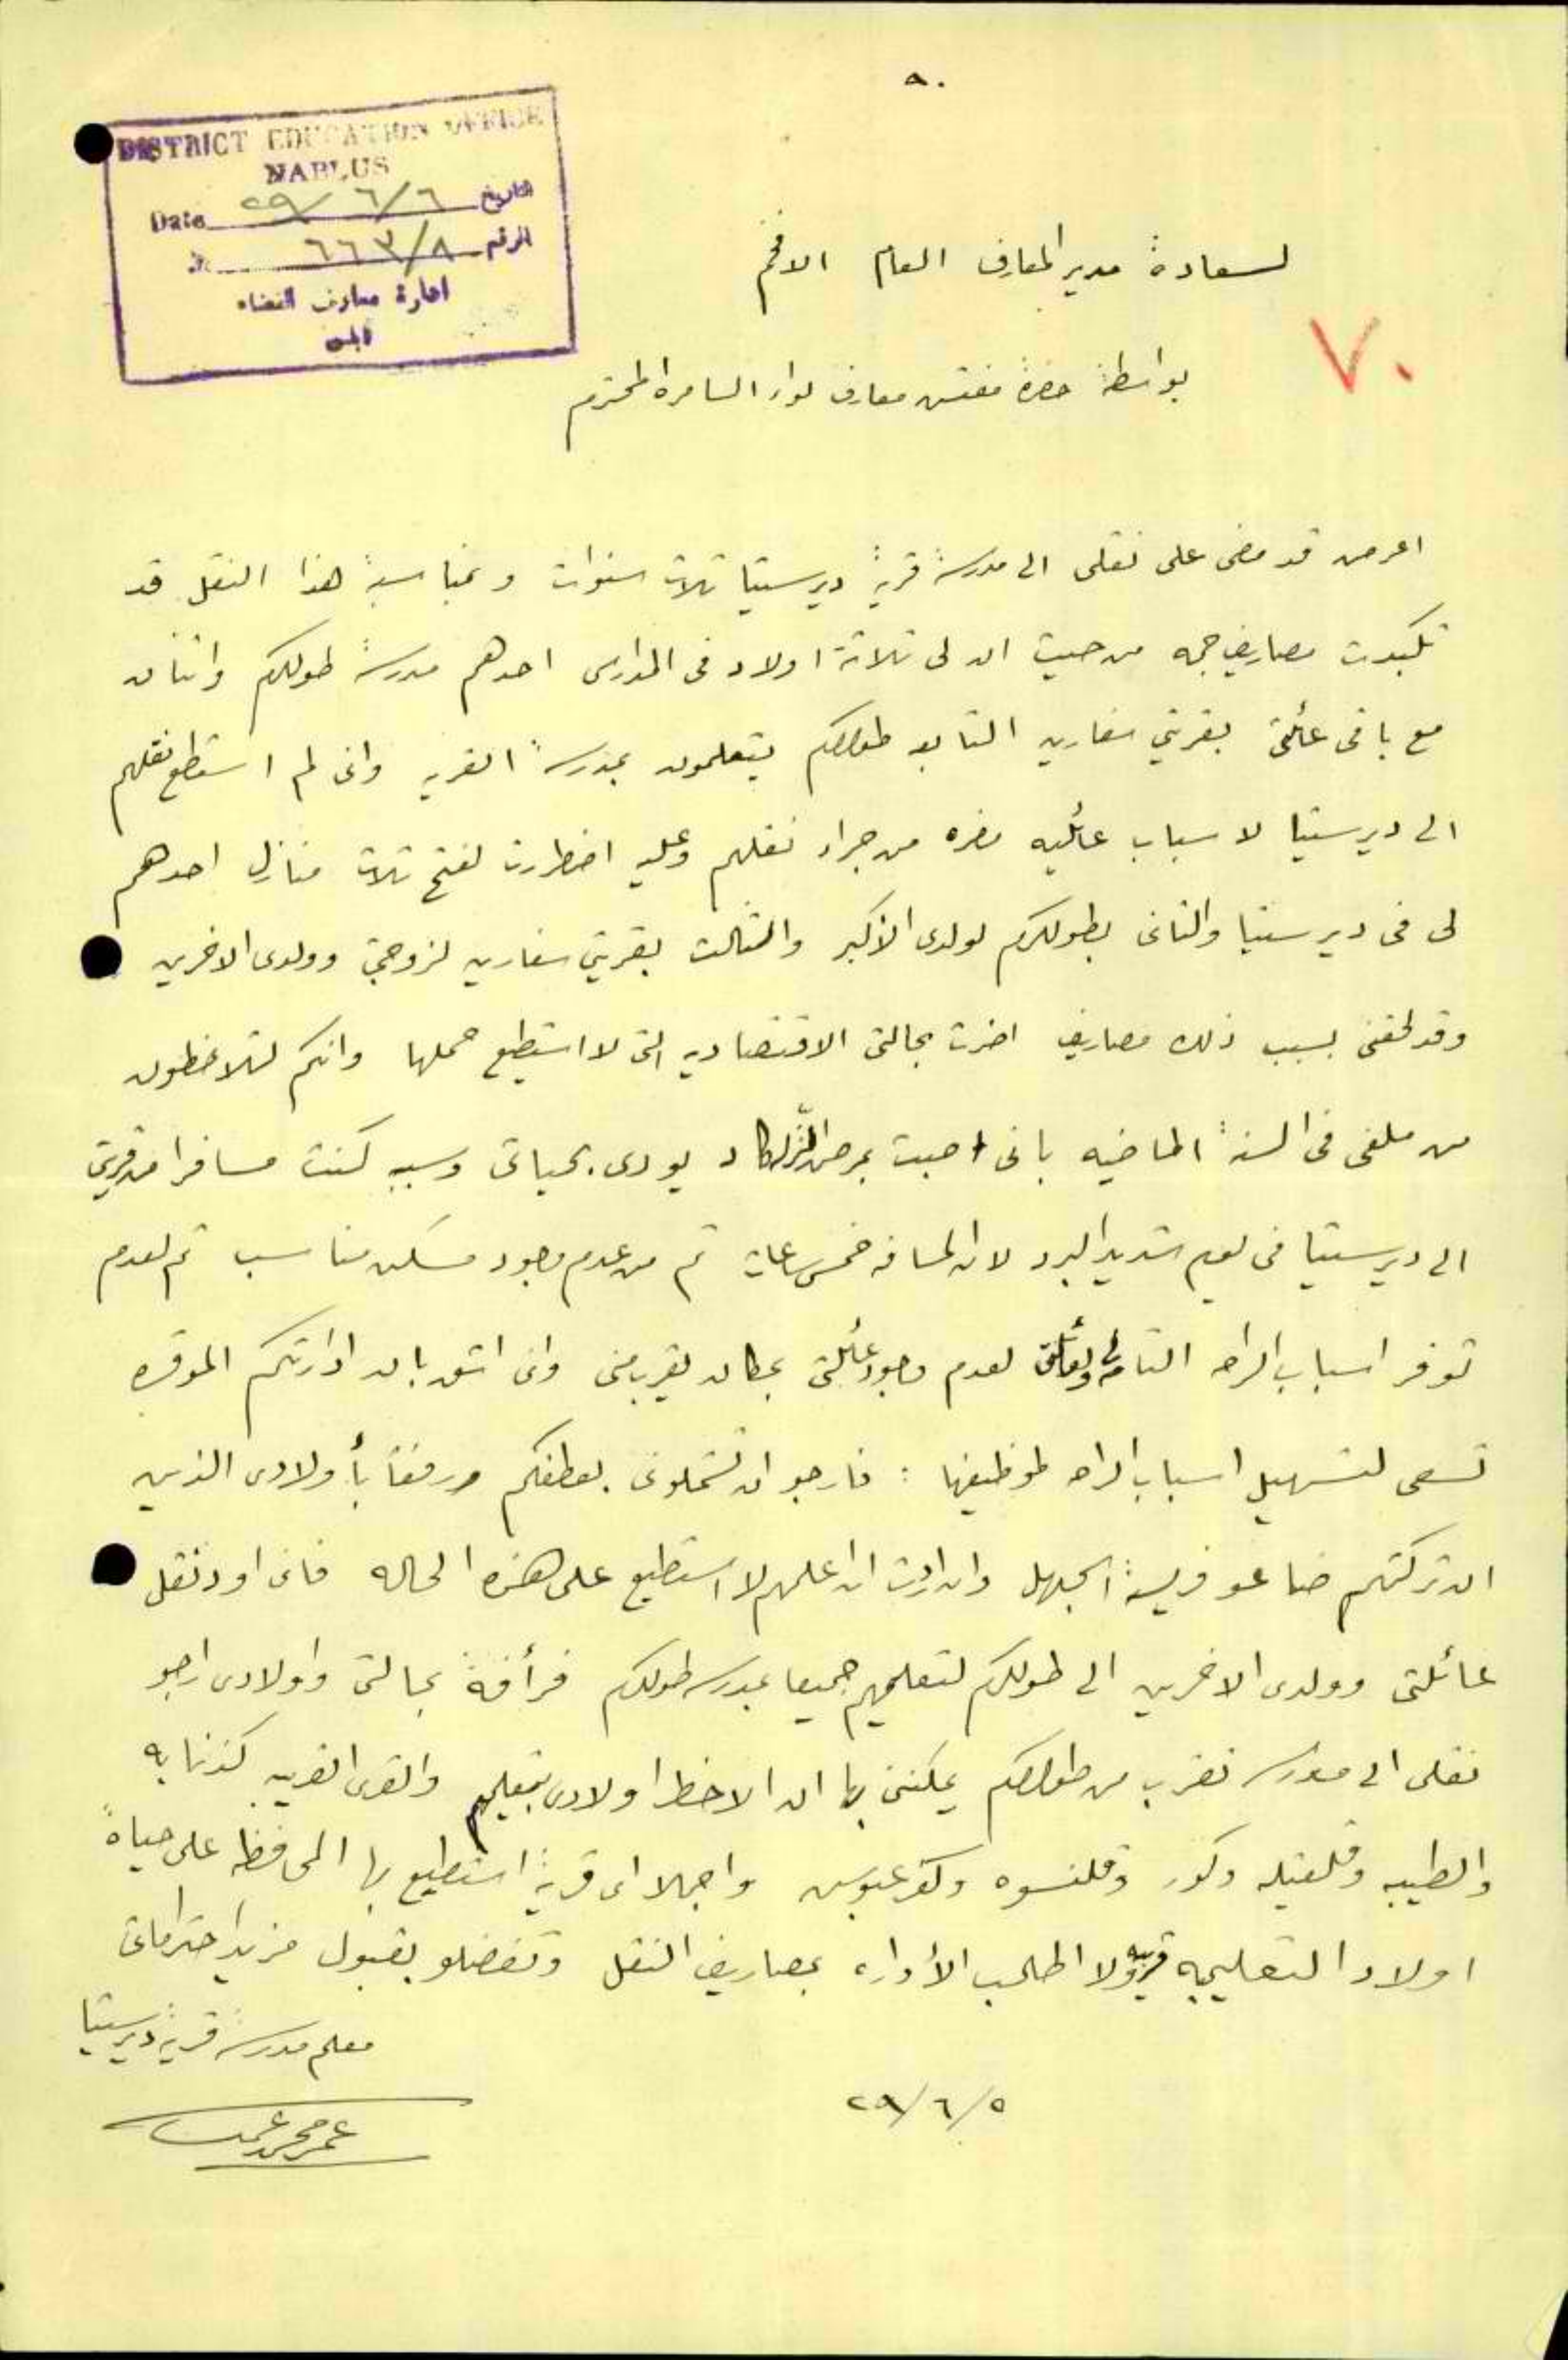 ٨٠
DISTRICT EDUCATION OFFICE
NABLUS
Date ٢٩/٦/٦ التاريخ
٦٦٣/٨ الرقم
ادارة معارف القضاء
نابلس
لسعادة مدير المعارف العام الافخم
٧٠
بواسطة حضرة مفتش معارف لواء السامره المحترم
اعرض قد مضى على نقلى الى مدرسة قرية ديرستيا ثلاث سنوات وبمناسبة هذا النقل قد
تكبدت مصاريف جمه من حيث ان لى ثلاثة اولاد فى المدارس احدهم مدرسة طولكرم واثنان
مع باقى عائلتى بقريتي سفارين التابعه طولكرم يتعلمون بمدرسة القريه وانى لم استطع نقلهم
الى ديرستيا لاسباب عائليه مضره من جراء نقلهم وعليه اضطررت لفتح ثلاث منازل احدهم
لى فى ديرستيا والثانى بطولكرم لولدى الأكبر والثالث بقريتي سفارين لزوجتي وولدى الاخرين
وقد لحقنى بسبب ذلك مصاريف اضرت بحالتى الاقتصاديه التى لا استطيع حملها وانكم لتلاحظون
من ملفى فى السنة الماضيه بانى اصبت بمرض كاد يودى بحياتى وسببه كنت مسافرا من قريتي
الى ديرستيا فى يوم شديد البرد لان المسافه خمس ساعات ثم من عدم وجود مسكن مناسب ثم لعدم
توفر اسباب الراحه التامه لعدم وجود عائلتى بمكان يقرب منى وانى اثق بان ادارتكم الموقره
تسعى لتسهيل اسباب الراحه لموظفيها : فارجو ان تشملونى بعطفكم ورفقاً بأولادى الذين
ان تركتهم ضاعو فريسة الجهل وان اردت ان اعلمهم لا استطيع على هذه الحاله فانى اود نقل
عائلتى وولدى الاخرين الى طولكرم لتعليمهم جميعا بمدرسة طولكرم فرأفة بحالتى واولادى ارجو
نقلى الى مدرسه تقرب من طولكرم يمكننى بها ان الاحظ اولادى بتعليمهم والقرى القريبه كذنابه
والطيبه وقلقيله وكور وقلنسوه وكفر عبوس واجمالا اى قرية استطيع بها المحافظه على حياة
اولاد التعليميه ولا اطلب الأداره بمصاريف النقل وتفضلو بقبول مزيد احتراماتى
معلم مدرسة قرية ديرستيا
٢٩/٦/٥
عمر محمد